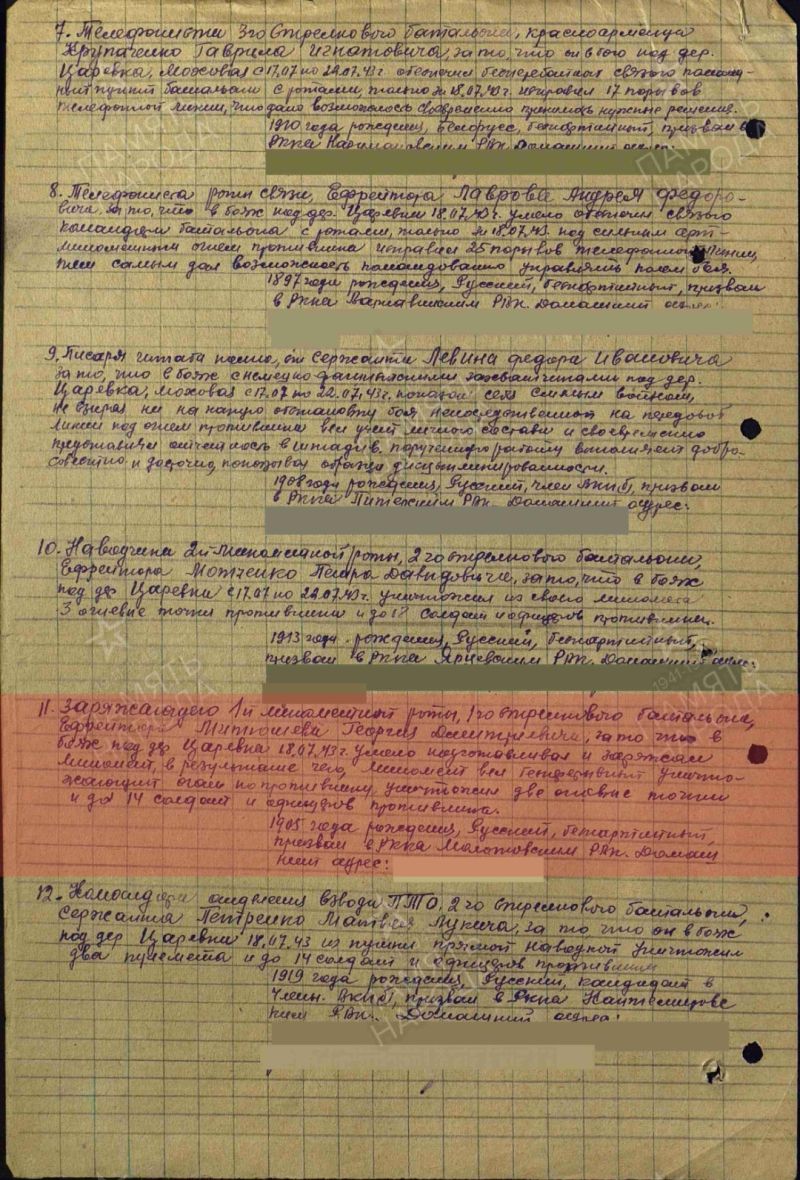 7. Телефониста 3го стрелкового батальона, красноармейца
Крупаченко Гаврила Игнатовича, за то, что он в бою под дер.
Царевка, Моховая с 17.07 по 22.07.43г. обеспечил бесперебойной связью
пункт батальона с ротами, только за 18.07.43г. исправил 17 порывов
телефонной линии, что дало возможность своевременно принимать нужные решения.
1910 года рождения, белорус, беспартийный, призван в
РККА РВК. Домашний адрес:
8. Телефониста роты связи, Ефрейтора Лаврова Андрея Федоро-
вича, за то, что в боях под дер. Царевка 18.07.43г. умело обеспечил связью
командира батальона с ротами, только за 18.07.43. под сильным арт-
минометным огнем противника исправил 25 порывов телефонной линии,
тем самым дал возможность командованию управлять полем боя.
1897 года рождения, Русский, беспартийный, призван
в РККА Варнавинским РВК. Домашний адрес:
9. Писаря штаба полка, ст. сержанта Левина Федора Ивановича
за то, что в боях с немецко-фашистскими захватчиками под дер.
Царевка, Моховая с 17.07 по 22.07.43г. показал себя смелым войном,
не взирая ни на какую обстановку боя, непосредственно на передовой
линии под огнем противника вел учет личного состава и своевременно
представлял отчетность в штадив, порученную работу выполняет добро-
совестно и досрочно, показывая образцы дисциплинированности.
1908 года рождения, Русский, член ВКП(б), призван
в РККА РВК. Домашний адрес:
10. Наводчика 2й минометной роты, 2го стрелкового батальона,
Ефрейтора Мотченко Петра Давидовича, за то, что в боях
под дер Царевка с 17.07 по 22.07.43г. уничтожил из своего миномета
3 огневые точки противника и до 18 солдат и офицеров противника.
1913 года рождения, Русский, беспартийный,
призван в РККА Ярцевским РВК. Домашний адрес:
11. Заряжающего 1й минометной роты, 1го стрелкового батальона,
Ефрейтора Митюшева Георгия Дмитриевича, за то что в
боях под дер Царевка 18.07.43г. умело подготавливал и заряжал
миномет, в результате чего, миномет вел беспрерывный уничто-
жающий огонь по противнику, уничтожил две огневые точки
и до 14 солдат и офицеров противника.
1905 года рождения, Русский, беспартийный,
призван в РККА Молотовским РВК. Домаш
ний адрес:
12. Командира отделения взвода ПТО, 2го стрелкового батальона,
Сержанта Петренко Матвея Лукича, за то что он в боях
под дер Царевка 18.07.43 из пушки прямой наводкой уничтожил
два пулемета и до 14 солдат и офицеров противника
1919 года рождения, Русский, кандидат в
члены ВКП(б), призван в РККА
ким РВК. Домашний адрес:
ПАМЯТЬ НАРОДА